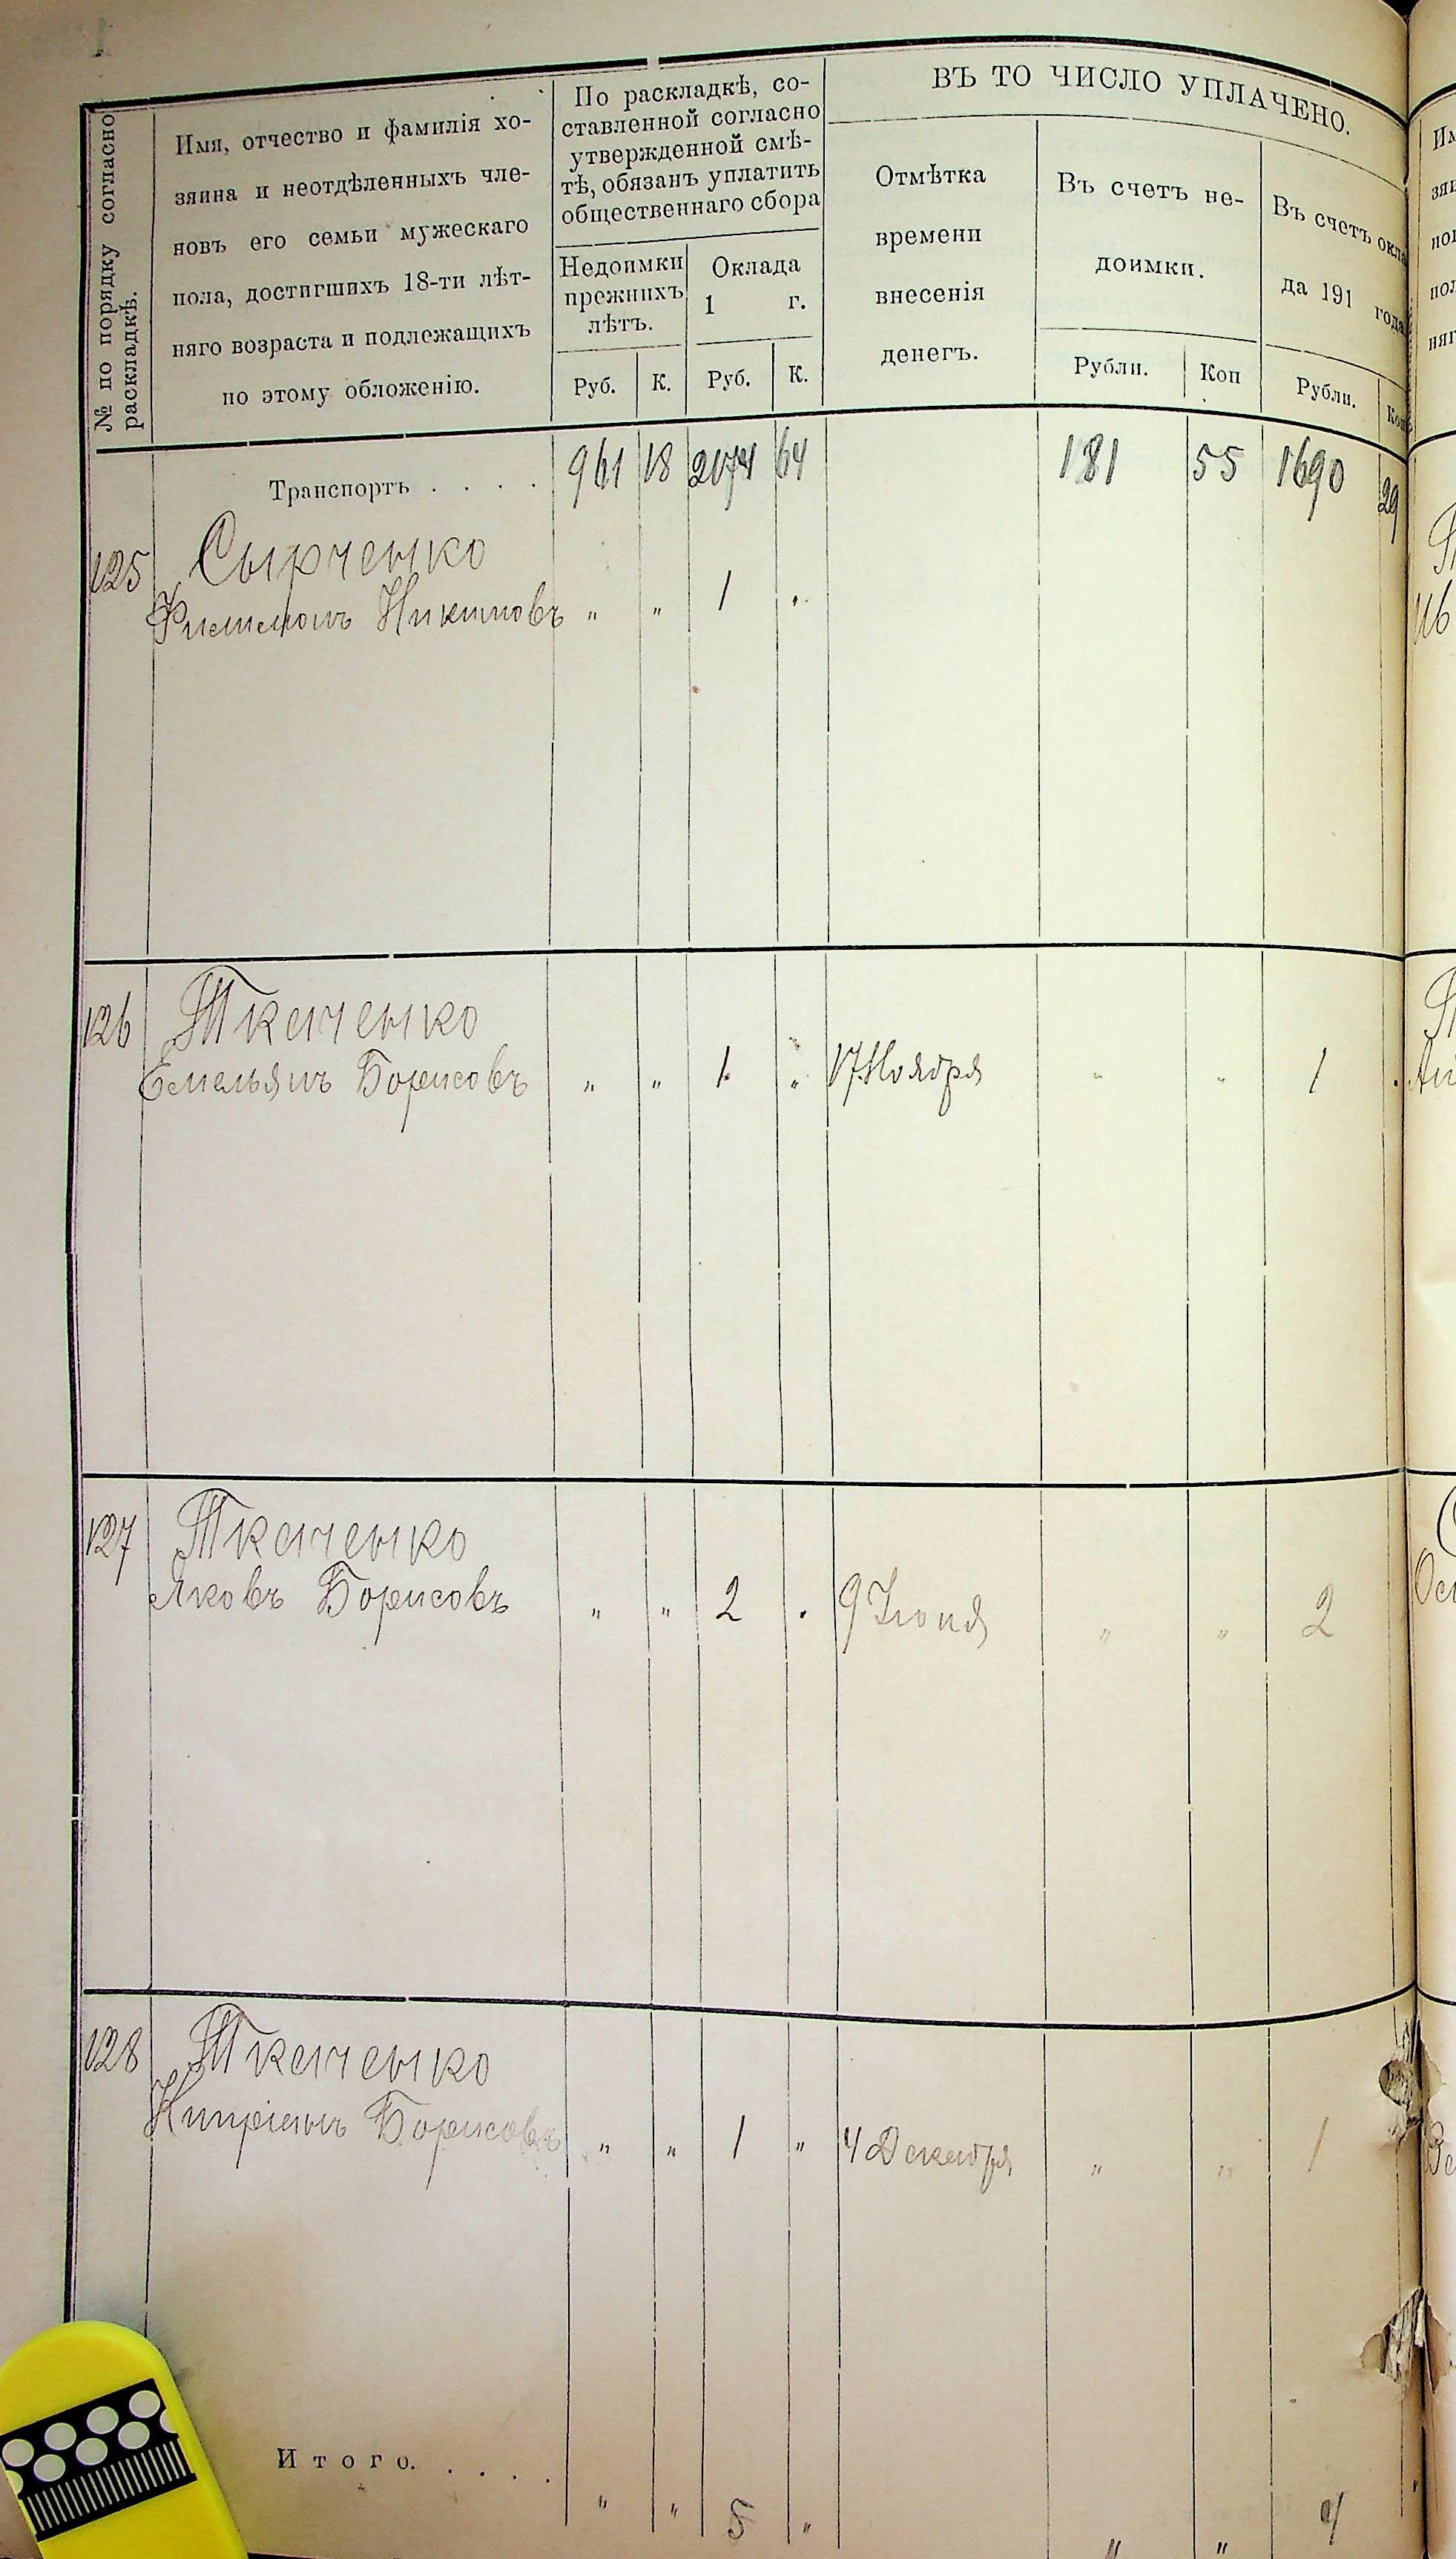 № по порядку согласно
раскладкѣ.
Имя, отчество и фамилія хо-
зяина и неотдѣленныхъ чле-
новъ его семьи мужескаго
пола, достигшихъ 18-ти лѣт-
няго возраста и подлежащихъ
по этому обложенію.
По раскладкѣ, со-
ставленной согласно
утвержденной смѣ-
тѣ, обязанъ уплатить
общественнаго сбора
Недоимки
прежнихъ
лѣтъ.
Оклада
1 г.
Руб. К. Руб. К.
ВЪ ТО ЧИСЛО УПЛАЧЕНО.
Отмѣтка
времени
внесенія
денегъ.
Въ счетъ не-
доимки.
Рубли. Коп
Въ счетъ окла
да 191 года
Рубли. Коп
Транспортъ . . . . 961 18 2074 64 181 55 1690 29
125 Сырченко
Филимонъ Никитовъ " " 1 "
126 Ткаченко
Емельянъ Борисовъ " " 1 " 17 Ноября " " 1
127 Ткаченко
Яковъ Борисовъ " " 2 . 9 Іюня " " 2
128 Ткаченко
Кипріянъ Борисовъ " " 1 " 4 Декабря " " 1
Итого. . . . . " " 5 " " " 4